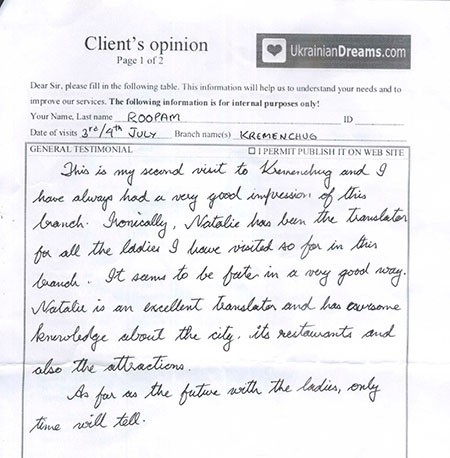 Client's opinion
Page 1 of 2
UkrainianDreams.com
Dear Sir, please fill in the following table. This information will help us to understand your needs and to
improve our services. The following information is for internal purposes only!
Your Name, Last name ROOPAM ID
Date of visits 3rd/4th JULY Branch name(s) KREMENCHUG
GENERAL TESTIMONIAL ☐ I PERMIT PUBLISH IT ON WEB SITE
This is my second visit to Kremenchug and I
have always had a very good impression of this
branch. Ironically, Natalie has been the translator
for all the ladies I have visited so far in this
branch. It seems to be fate in a very good way.
Natalie is an excellent translator and has awesome
knowledge about the city, its restaurants and
also the attractions.
As far as the future with the ladies, only
time will tell.